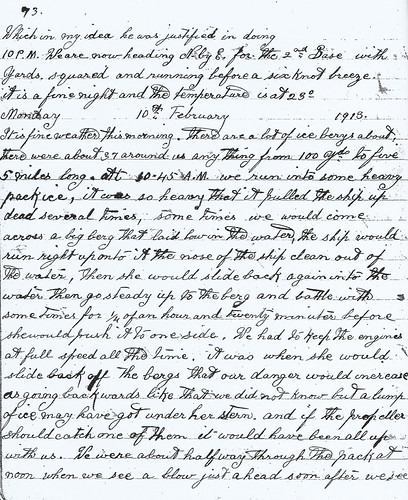 93.
Which in my idea he was justified in doing
10 P.M. We are now heading N. by E. for the 2nd Base with
Yards, squared and running before a six knot breeze.
it is a fine night and the temperature is at 23°
Monday 10th February 1913.
It is fine weather this morning. there are a lot of ice bergs about.
there were about 37 around us any thing from 100 yds to five
5 miles long. At 10.45 A.M. we run into some heavy
pack ice, it was so heavy that it pulled the ship up
dead several times, some times we would come
across a big berg that laid low in the water, the ship would
run right up onto it the nose of the ship clean out of
the water, then she would slide back again into the
water then go steady up to the berg and battle with
some times for ¼ of an hour and twenty minutes before
she would push it to one side. We had to keep the engines
at full speed all the time. it was when she would
slide back off the bergs that our danger would increase
as going backwards like that we did not know but a lump
of ice may have got under her stern. and if the propeller
should catch one of them it would have been all up
with us. We were about halfway through the pack at
noon when we see a blow just ahead soon after we see